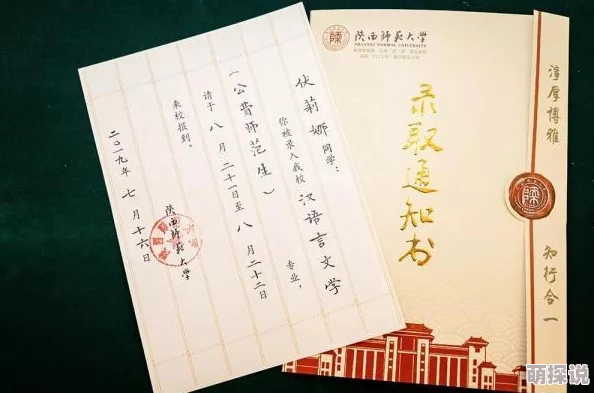 伏莉娜同学：
你被录入我校汉语言文学专业，
（公费师范生）
请于八月二十一日至八月二十二日
来校报到。
陕西师范大学
二〇一九年七月十六日
陕西师范大学
SHAANXI NORMAL UNIVERSITY
录取通知书
淳厚博雅
知行合一
萌探说